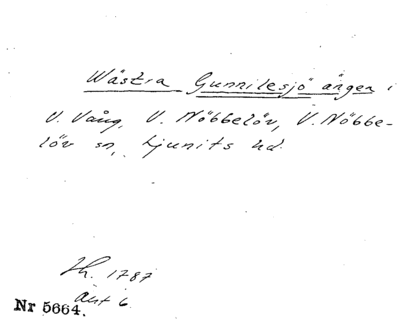 Wästra Gunnilesjö ängen i
V. Vång, V. Nöbbelöv, V. Nöbbe-
löv sn, Ljunits hd.
Lh. 1787
akt 6
Nr 5664.